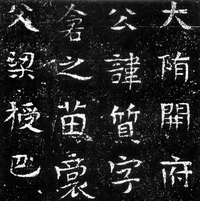 大隋開府
公諱質字
倉之苗裔
父梁授巴